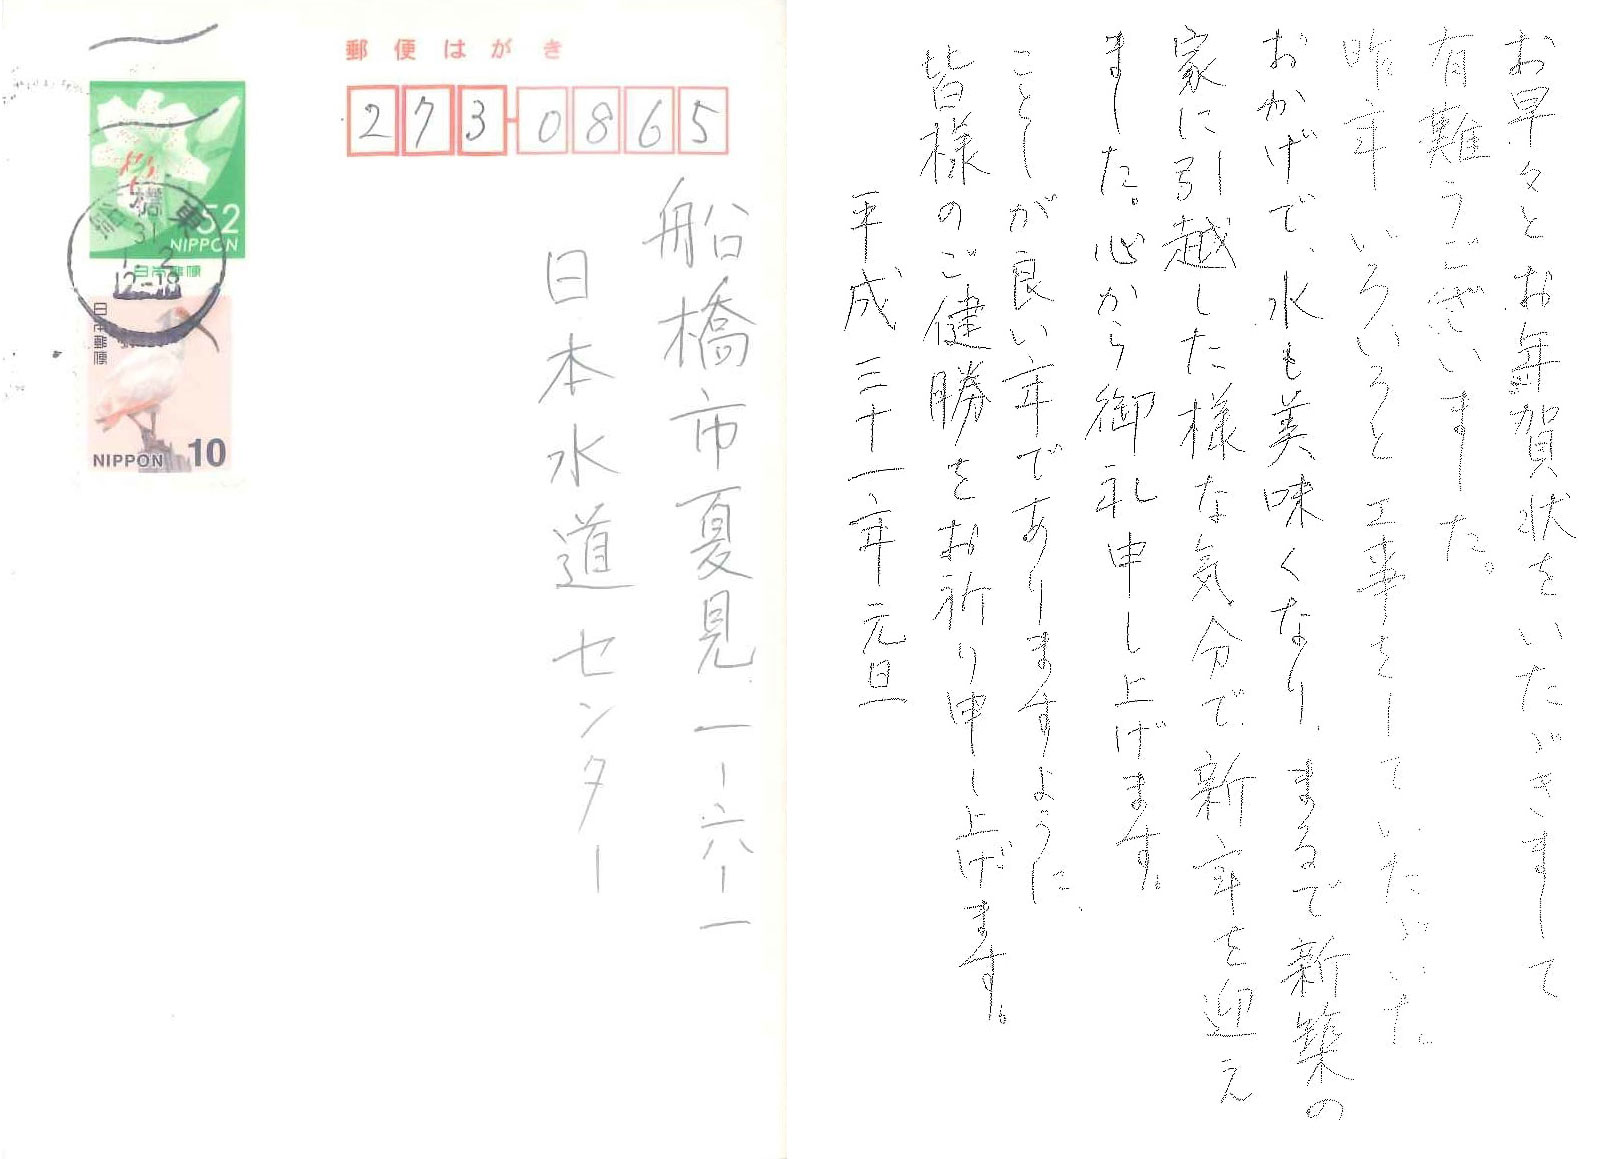 郵便はがき
273-0865
船橋市夏見一ー六ー一
日本水道センター
52
NIPPON
日本郵便
船橋東
31
1.2
12-18
日本郵便
NIPPON 10
お早々とお年賀状をいただきまして
有難うございました。
昨年いろいろと工事をしていただいた
おかげで、水も美味くなり、まるで新築の
家に引越した様な気分で新年を迎え
ました。心から御礼申し上げます。
ことしが良い年でありますように、
皆様のご健勝をお祈り申し上げます。
平成三十一年元旦